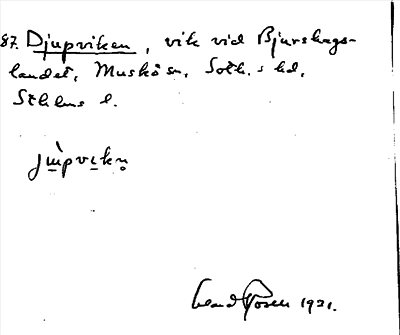 87. Djupviken, vik vid Bjurshags-
landet, Muskö sn, Soth.s hd,
Sthlms l.
jùpvikn̥
1931.